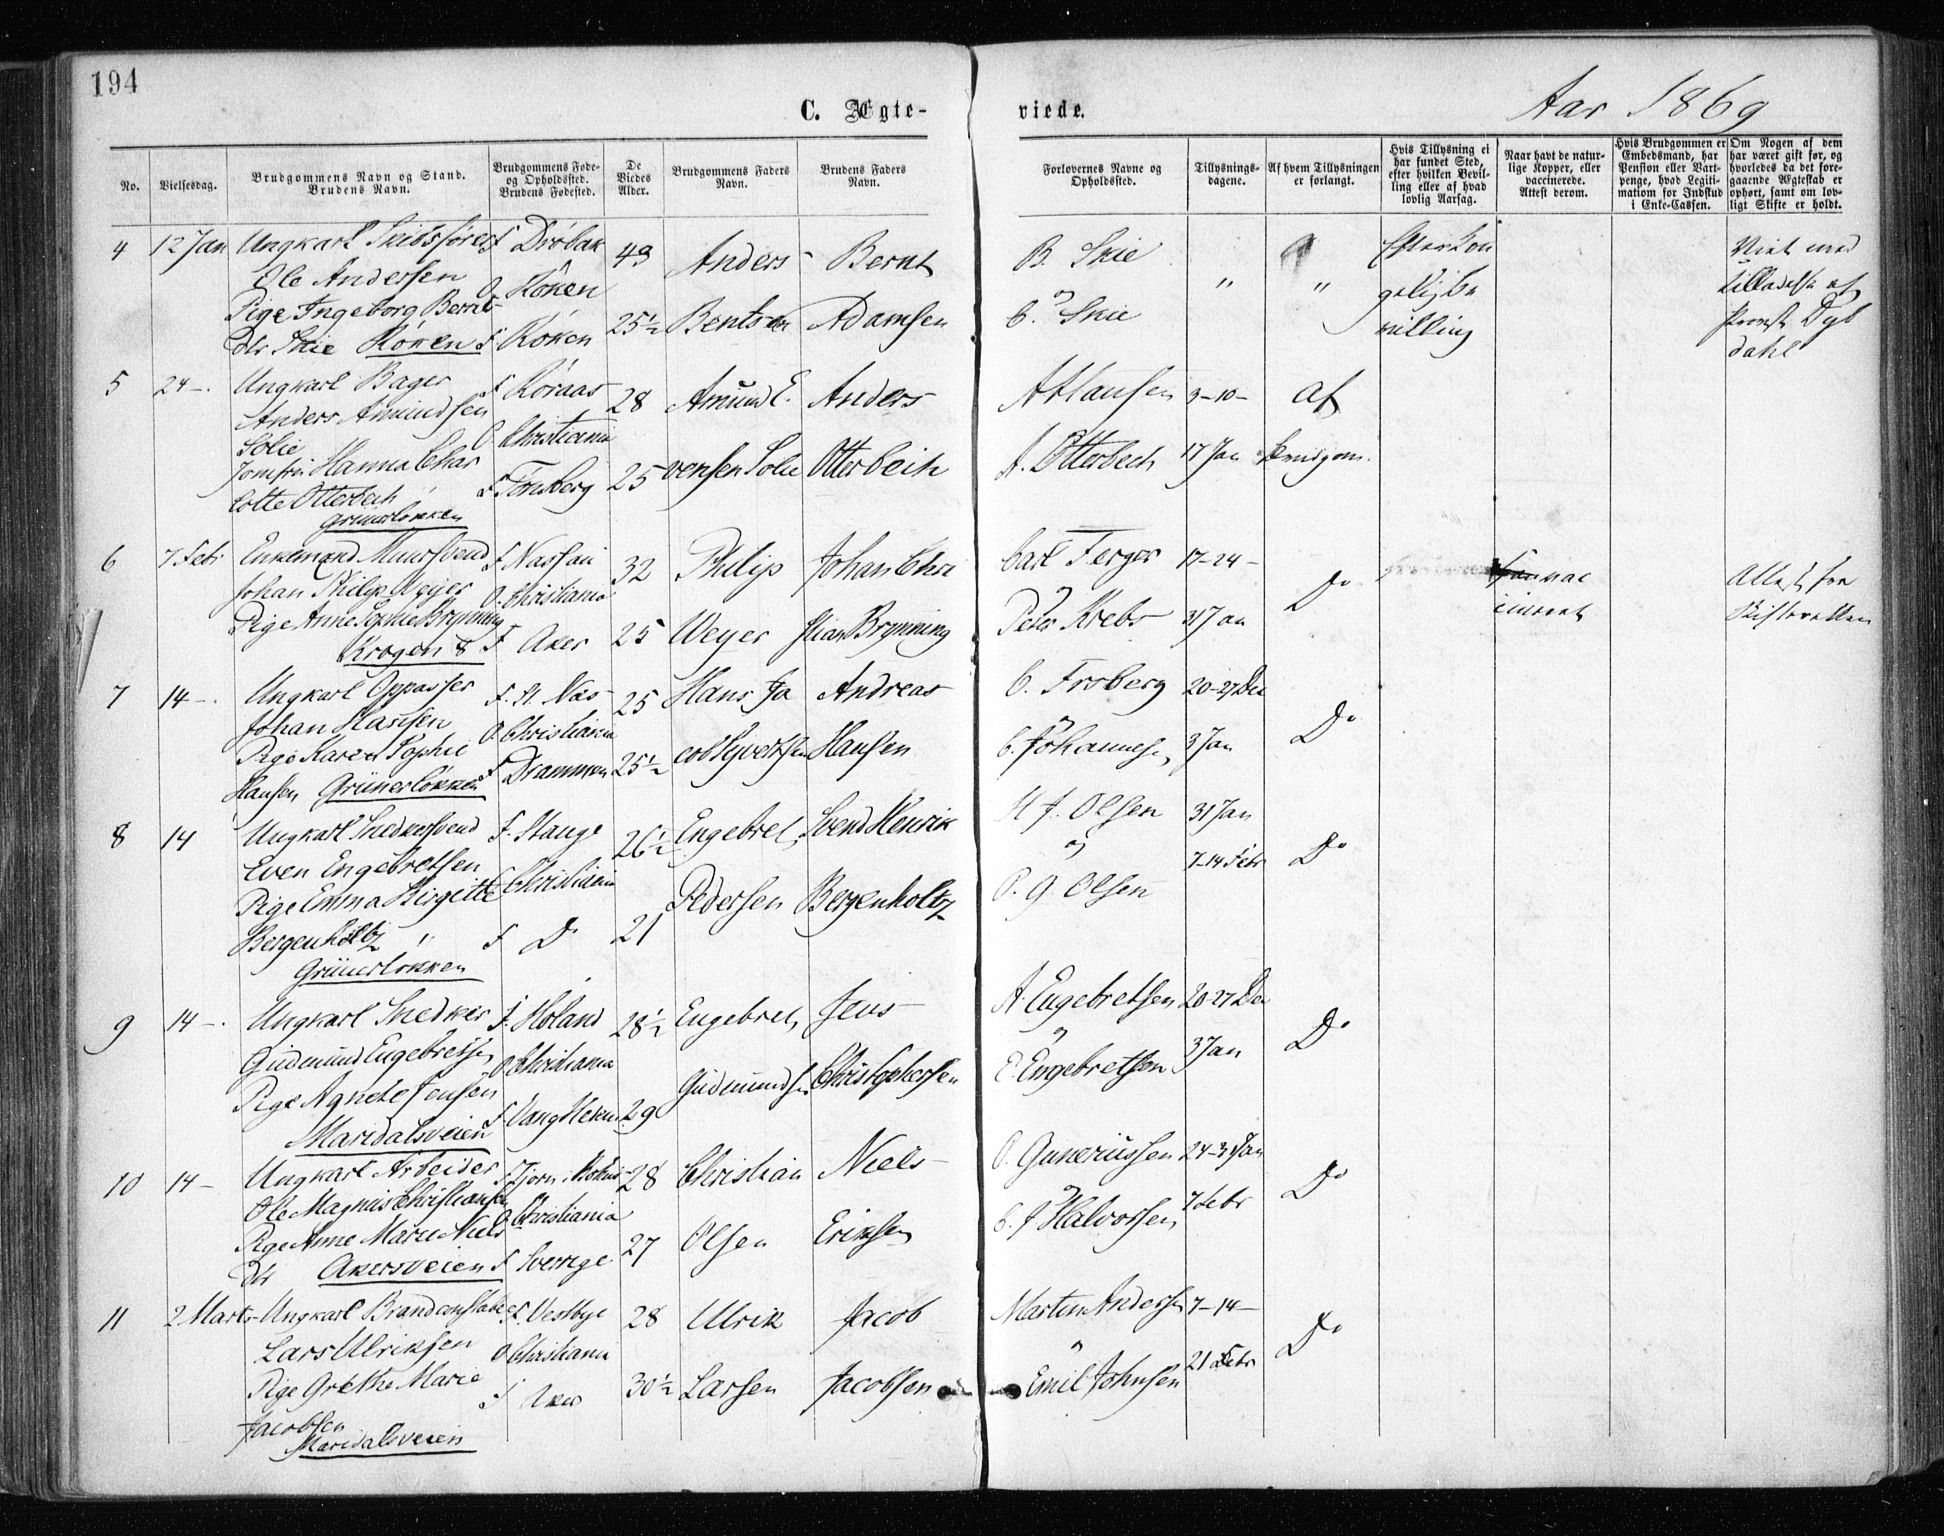 194
C. Ægte-
viede.
Aar 1869
No.
Vielsesdag.
Brudgommens Navn og Stand.
Brudens Navn.
Brudgommens Føde-
og Opholdssted.
Brudens Fødested.
De
Viedes
Alder.
Brudgommens Faders
Navn.
Brudens Faders
Navn.
Forlovernes Navne og
Opholdssted.
Tillysnings-
dagene.
Af hvem Tillysningen
er forlangt.
Hvis Tillysning ei
har fundet Sted,
efter hvilken Bevil-
ling eller af hvad
lovlig Aarsag.
Naar havt de natur-
lige Kopper, eller
vaccinerede.
Attest derom.
Hvis Brudgommen er
Embedsmand, har
Pension eller Vart-
penge, hvad Legiti-
mation for Indskud
i Enke-Cassen.
Om Nogen af dem
har været gift før, og
hvorledes da det fore-
gaaende Ægteskab er
ophørt, samt om lov-
ligt Skifte er holdt.
4 12 Jan Ungkarl Skibsfører F Drøbak 49 Anders Bernt B. Skie Efter kon
Ole Andersen O Röken " " geligbe
Pige Ingeborg Bernts 25½ Bentsen Adamsen C. Skie villing
Dtr Skie Röken F Röken
Viet med
tilladelse af
Provst Dyb
dahl
5 24 Ungkarl Bager F Röraas 28 Amund E. Anders A Hansen 3-10- af
Anders Amundsen
Solie O Christiania
Jomfru Hanna Char F Tönsberg 25 vensen Solie Otterbech A. Otterbech 17 Jan Brudgom.
lotte Otterbech
Grünerløkken
6 7 Febr Enkemand Muursvend F Nassau 32 Philip Johan Chri Carl Ferger 17-24- Do
Johan Philip Weyer O. Christiania
Pige Anne Sophie Brynning F Aker 25 Weyer stian Brynning Peter Krebs 31 Jan
Krogen 8
Attest fra
Skifteretten
7 14 Ungkarl Oppasser F. N. Næs 25 Hans Ja Andreas C. Froberg 20-27 Dec Do
Johan Hansen O Christiania
Pige Karen Sophie F Drammen 25½ cob Syvertsen Hansen C. Johannesen 3 Jan
Hansen Grünerløkken
8 14 Ungkarl Snedkersvend F. Stange 26½ Engebret Svend Henrik H J. Olsen 31 Jan
Even Engebretsen O Christiania og 7-14 Febr Do
Pige Emma Birgitte Pedersen Bergenholtz P. G. Olsen
Bergenholtz " F Do 21
Grünerløkken
9 14 Ungkarl Snedker F. Høland 28½ Engebret Jens A. Engebretsen 20-27 Dec
Gudmund Engebretsen O Christiania Gudmundsen Christophersen E. Engebretsen 3 Jan Do
Pige Agnete Jensen F Vang Hekm. 29
Maridalsveien
10 14 Ungkarl Arbeider 28 Christian Niels O. Gunerüssen 24-31 Jan
Ole Magnus Christiansen O Christiania Do
Pige Anne Marie Niels F Sverrige 27 Olsen Eriksen C. J Halvorsen 7 Febr
Dtr Akersveien
11 2 Marts Ungkarl Brandconstabel F Vestbye 28 Ulrik Jacob Martin Andersen 7-14- Do
Lars Ulriksen O Christiania "
Pige Grethe Marie F Aker 30½ Larsen Jacobsen Emil Johnsen 21 Febr
Jacobsen
Maridalsveien